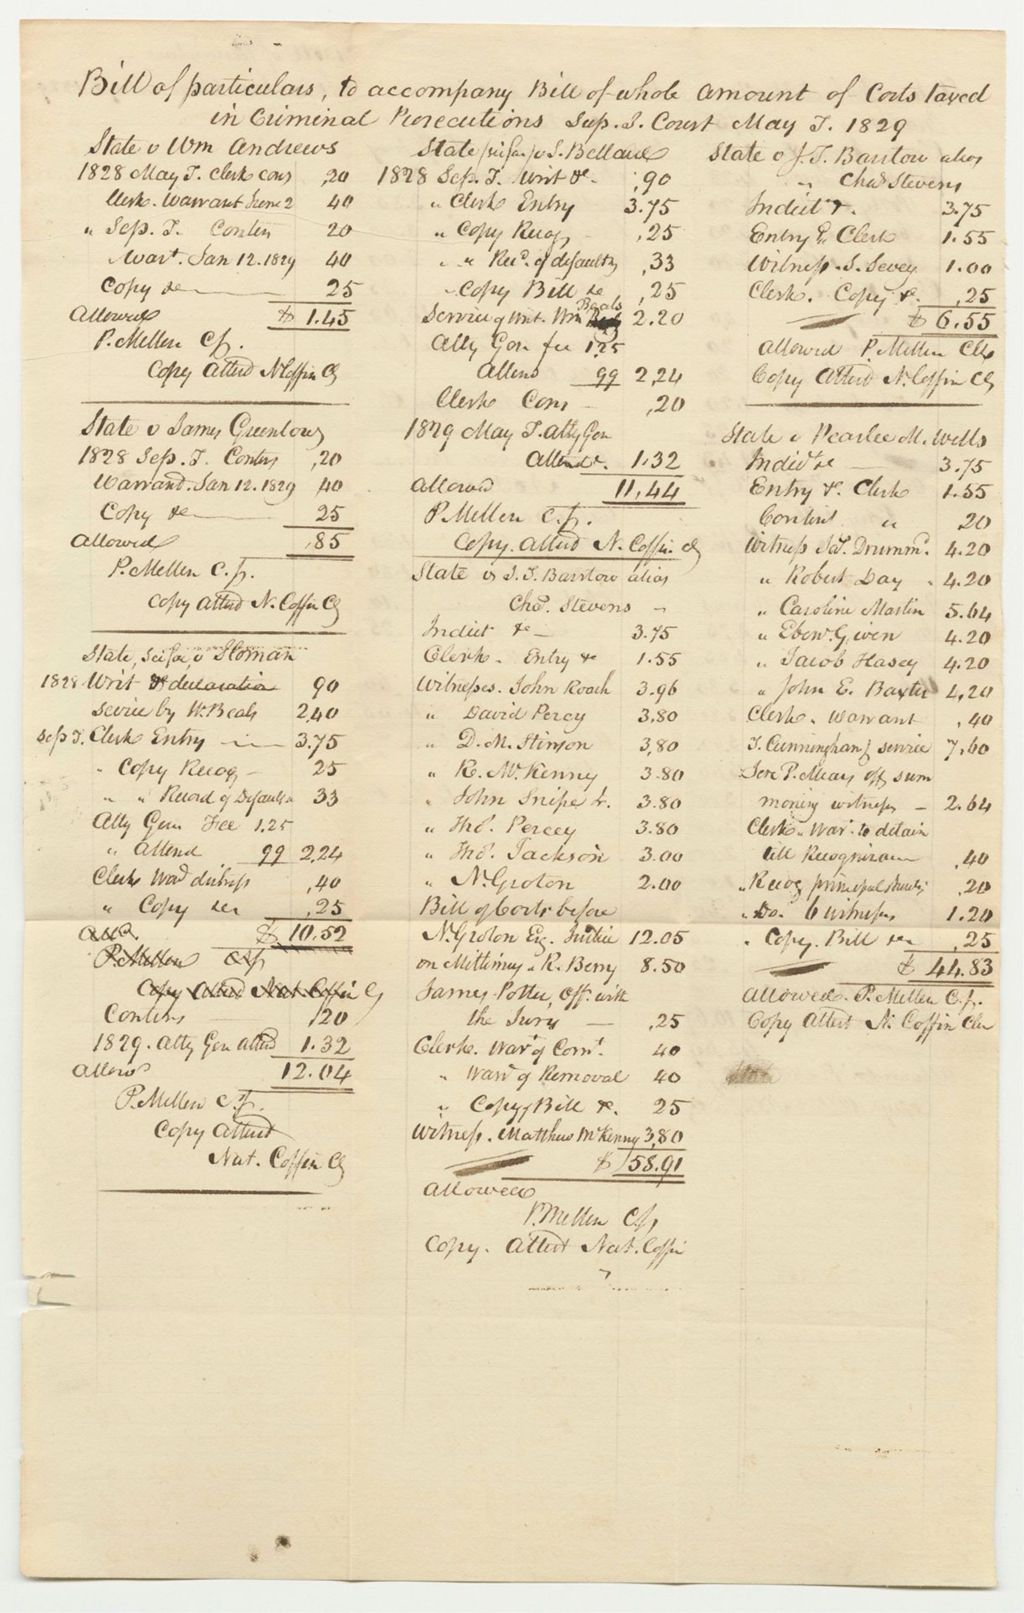 Bill of particulars, to accompany Bill of whole amount of Costs taxed
in Criminal Prosecutions Sup. J. Court May T. 1829
State v Wm Andrews
1828 May T. Clerk cons ,20
Clerk. Warrant June 2 40
" Sep. T. Contin 20
Wart. Jan 12. 1829 40
Copy &c 25
Allowed $ 1.45
P. Mellen C.J.
Copy Attest N. Coffin Ck
State v James Greenlow
1828 Sep. T. Contin ,20
Warrant. Jan 12. 1829 40
Copy &c 25
Allowed ,85
P. Mellen C.J.
Copy Attest N. Coffin Ck
State, Sci fa, v Sloman
1828 Writ & declaration 90
Service by W. Beals 2.40
Sep T. Clerk Entry 3.75
" Copy Recog 25
" " Record of Default 33
Atty Gen Fee 1.25
" Attend 99 2,24
Clerk distress ,40
" Copy &c ,25
$ 10.52
P. Mellen C.J.
Copy Attest Nat. Coffin Ck
Contin ,20
1829. Atty Gen atted 1.32
Allowd 12.04
P. Mellen C.J.
Copy Attest
Nat. Coffin Ck
State (sci fa) v J. Bellard
1828 Sep. T. Writ &c. ,90
" Clerk Entry 3.75
" Copy Recog ,25
" " Recd. of default ,33
" Copy Bill &c ,25
Beals
Service of Writ. Wm 2.20
Atty Gen fee 1.25
Attend 99 2,24
Clerk Cons ,20
1829 May T. Atty Gen
Attend &c. 1.32
Allowed 11,44
P. Mellen C.J.
Copy. Attest N. Coffin. Ck
State vs J. T. Barstow alias
Chas. Stevens
Indict &c 3.75
Clerk. Entry &c 1.55
Witnesses. John Roach 3.96
" David Percy 3,80
" D. M. Stinson 3,80
" R. McKenny 3.80
" John Snipe Jr. 3.80
" Thos. Percey 3.80
" Thos. Jackson 3.00
" N. Groton 2.00
Bill of Costs before
N. Groton Esq. Justice 12.05
on Mittimus R. Berry 8.50
James Potter, off. with
the Jury ,25
Clerk. Wart of Comt. 40
" Wart of Removal 40
" Copy Bill &c. 25
Witness. Matthew McKenny 3,80
$ 58.91
Allowed
P. Mellen C.J.
Copy. Attest Nat. Coffin
State v J. T. Barstow alias
" Chas Stevens
Indict &. 3.75
Entry &c Clerk 1.55
Witness. J. Sevey 1.00
Clerk. Copy &c. ,25
$ 6.55
Allowed P. Mellen C.J.
Copy Attest N. Coffin Ck
State v Pearlee M. Wells
Indict &c 3.75
Entry &c. Clerk 1.55
Contins " 20
Witness Jas. Drummd. 4.20
" Robert Day 4.20
" Caroline Martin 5.64
" Ebenr. Given 4.20
" Jacob Hasey 4.20
" John E. Baxter 4,20
Clerk. Warrant ,40
J. Cunningham service 7,60
P. Meary off sum
moning witness 2.64
Clerk. War. to detain
till Recognizance ,40
" Recog principal ,20
" Do. 6 witness 1.20
" Copy. Bill &c ,25
$ 44.83
Allowed. P. Mellen C.J.
Copy Attest N. Coffin Cler
State